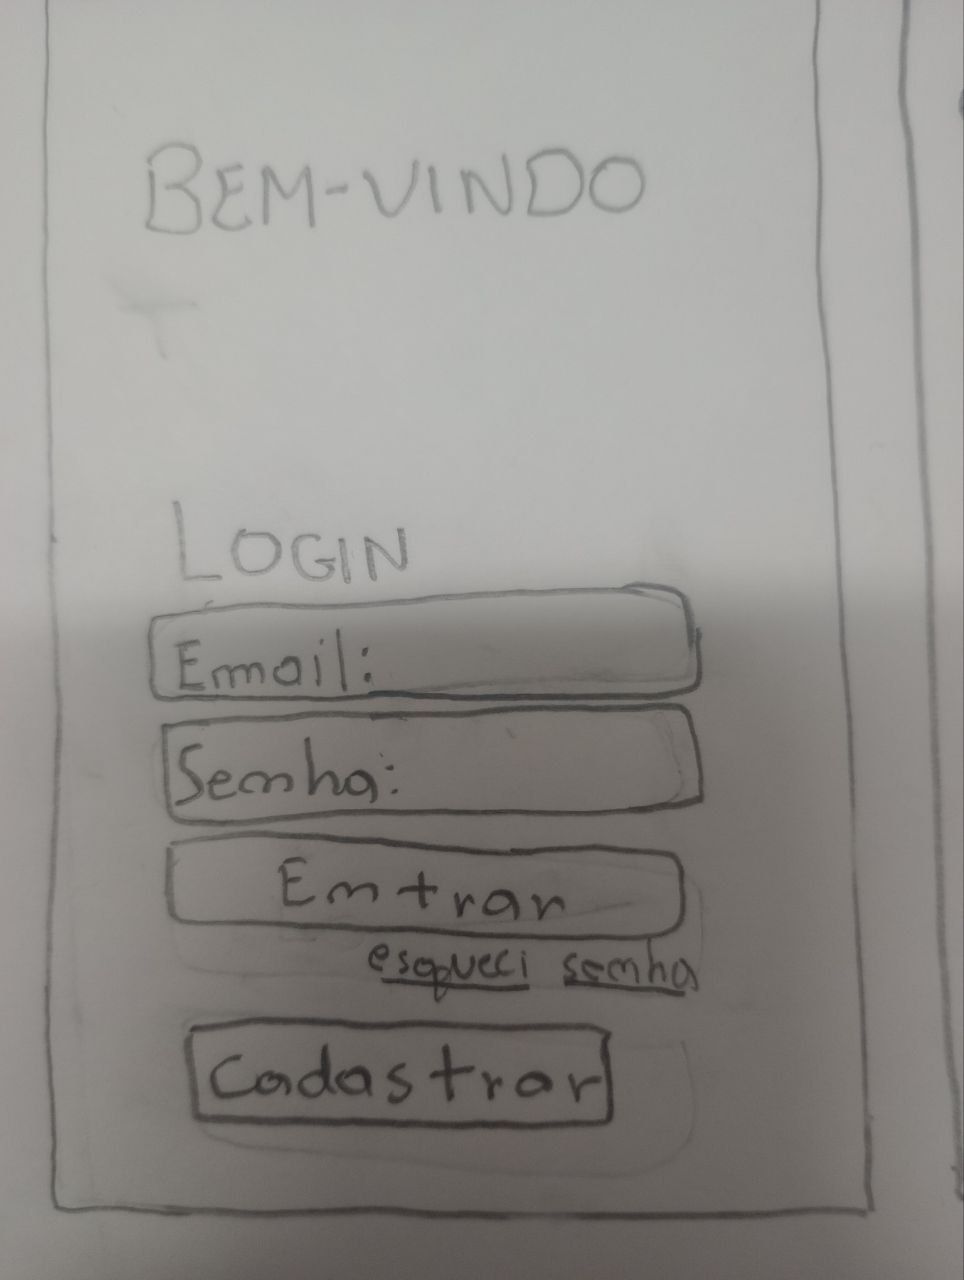 BEM-VINDO
LOGIN
Email:
Senha:
Entrar
esqueci senha
Cadastrar